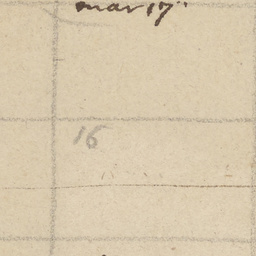 mar 17"
16